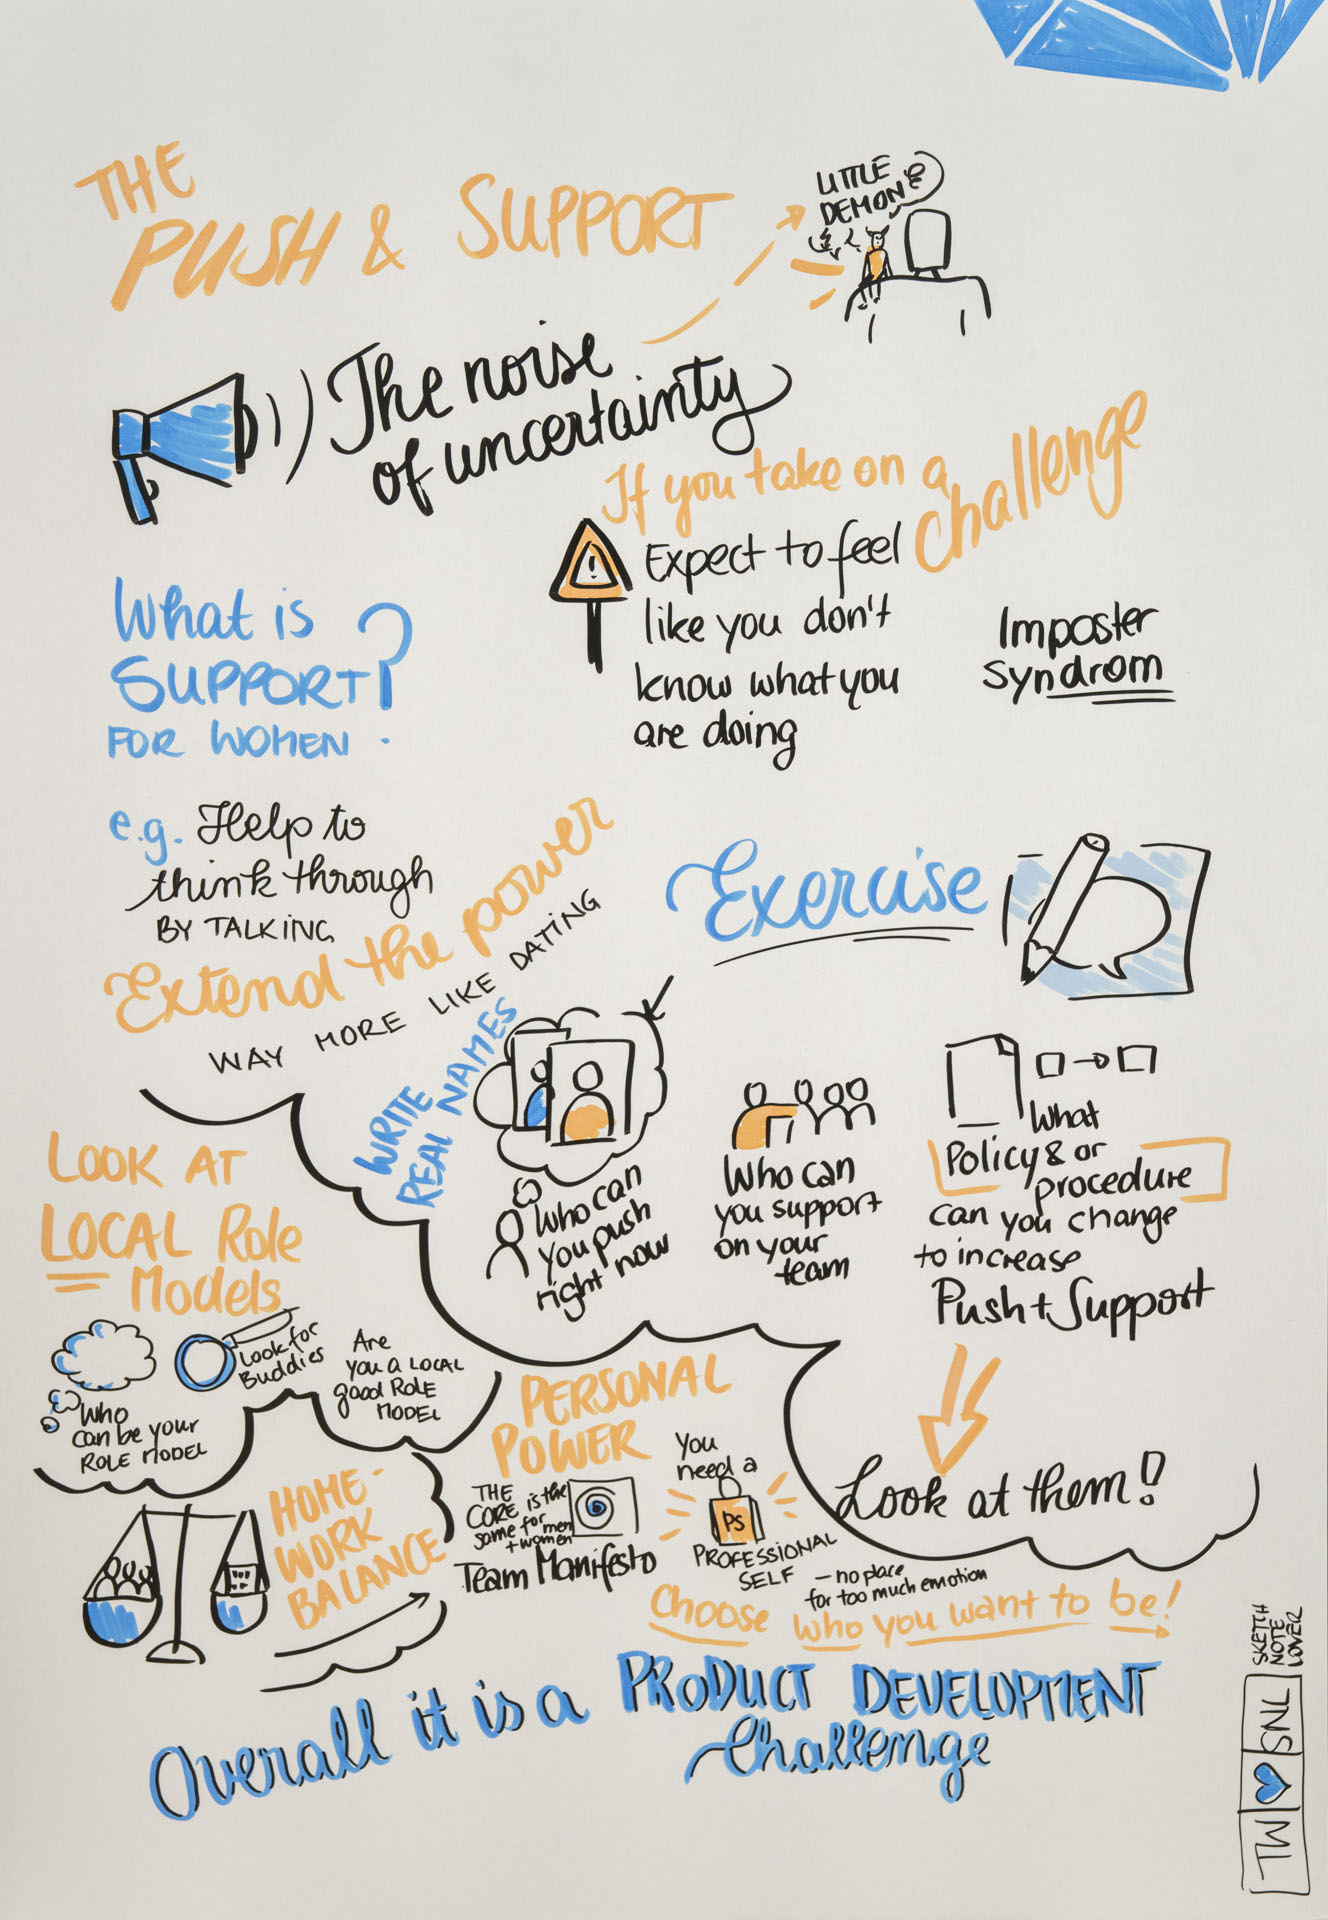 THE
PUSH & SUPPORT
LITTLE
DEMON
The noise
of uncertainty
If you take on a
challenge
!
Expect to feel
like you don't
know what you
are doing
Imposter
syndrom
What is
SUPPORT?
FOR WOMEN
e.g. Help to
think through
BY TALKING
Extend the power
WAY MORE LIKE DATING
Exercise
WRITE
REAL NAMES
Who can
you push
right now
Who can
you support
on your
team
What
Policy & or
procedure
can you change
to increase
Push + Support
Look at them!
LOOK AT
LOCAL Role
Models
Who
can be your
ROLE MODEL
Look for
Buddies
Are
you a LOCAL
good ROLE
MODEL
HOME-
WORK
BALANCE
PERSONAL
POWER
THE
CORE is the
same for men
+ women
Team Manifesto
You
need a
PS
PROFESSIONAL
SELF
- no place
for too much emotion
Choose who you want to be!
Overall it is a PRODUCT DEVELOPMENT
Challenge
TW SNL
SKETCH
NOTE
LOVER